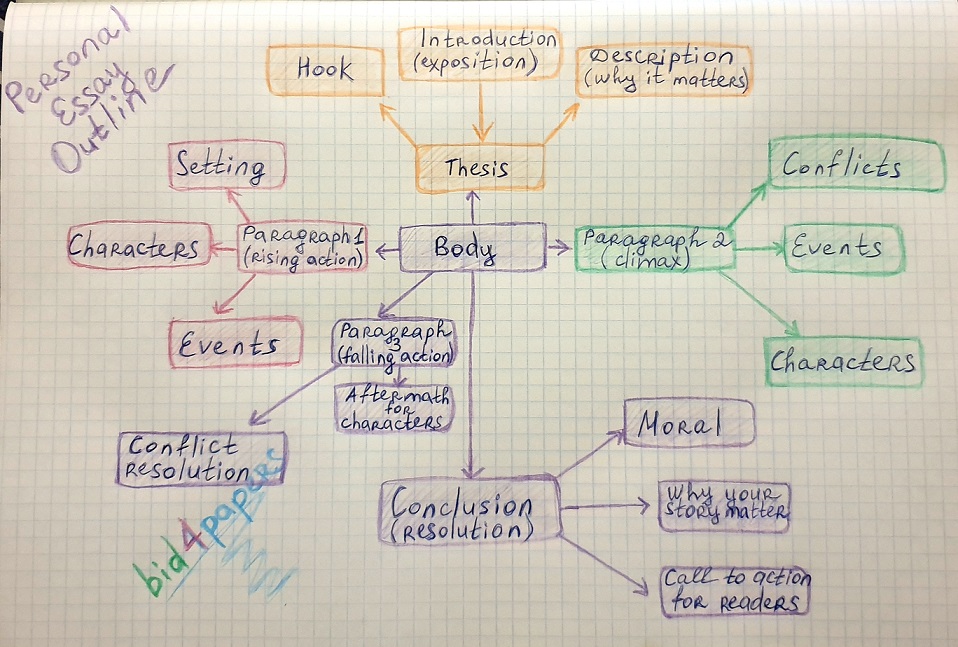 Personal
Essay
Outline
Hook
Introduction
(exposition)
Description
(why it matters)
Thesis
Setting
Conflicts
Characters
Paragraph 1
(rising action)
Body
Paragraph 2
(climax)
Events
Events
Paragraph
3
(falling action)
Characters
Aftermath
for
characters
Conflict
resolution
Moral
Conclusion
(resolution)
Why your
story matter
Call to action
for readers
bid4papers